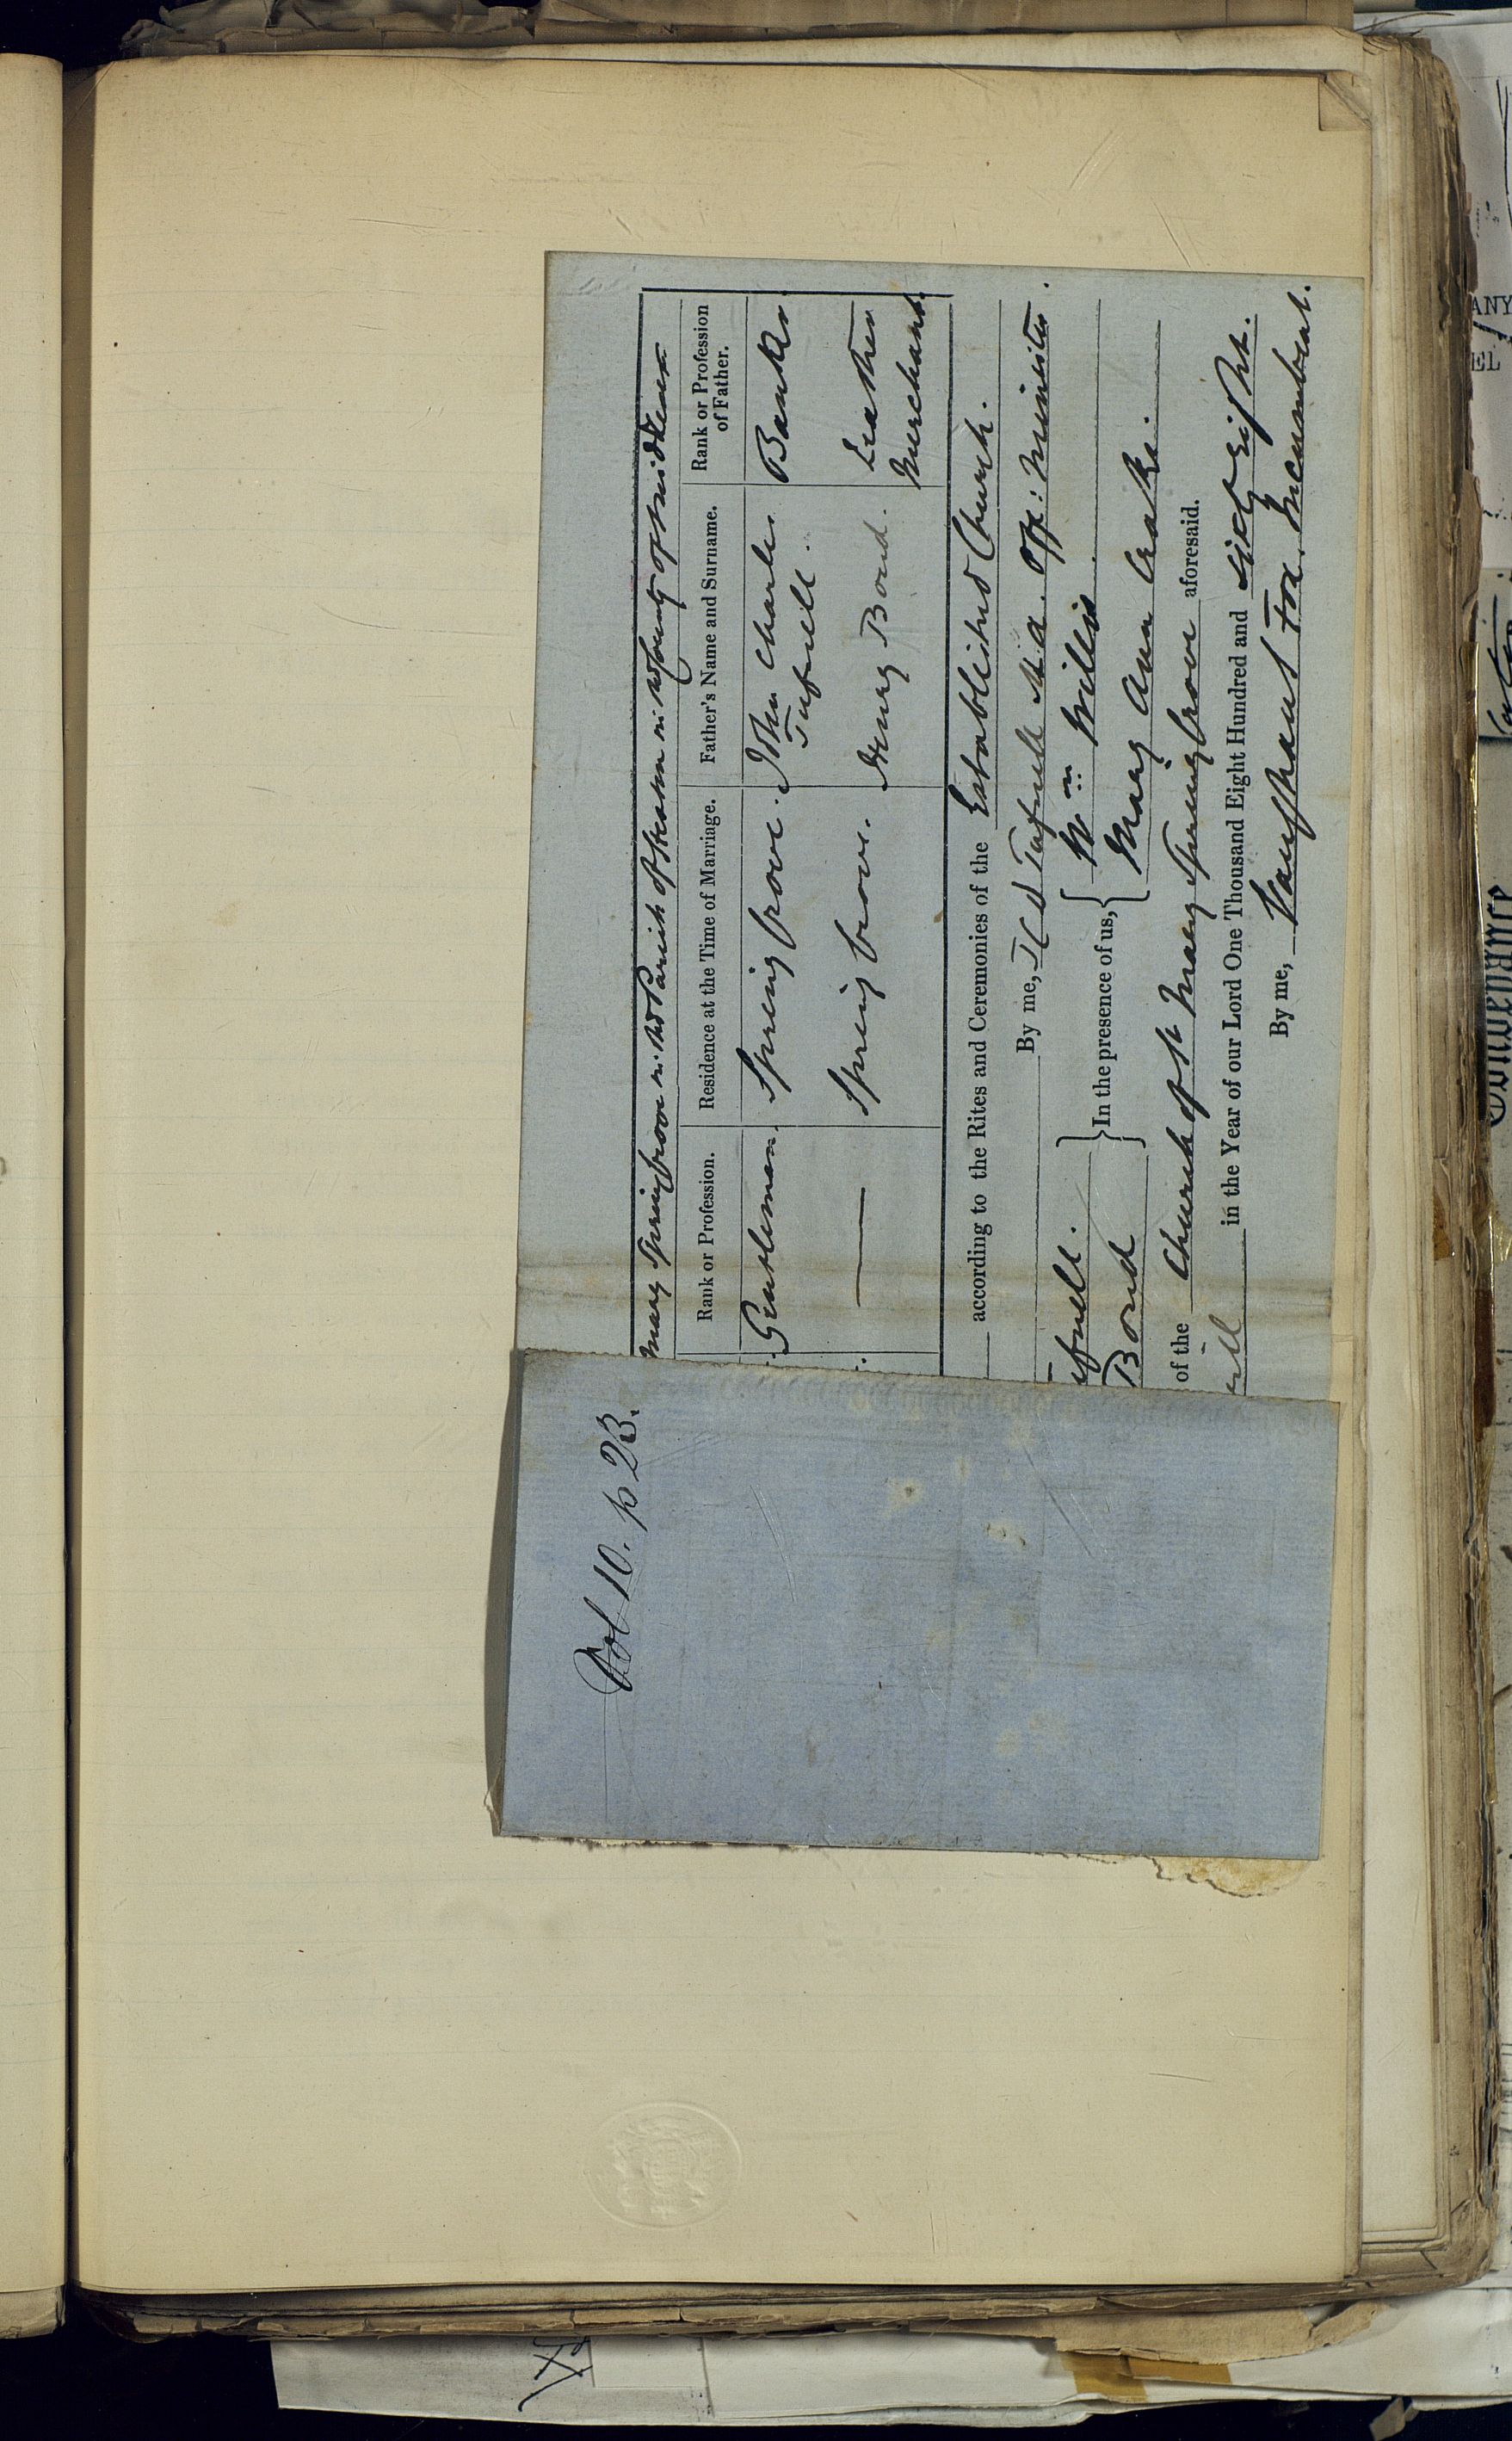 Vol 10. p 23.
Mary Spring Grove in the Parish of Heston in the County of Middlesex
Rank or Profession.
Residence at the Time of Marriage.
Father's Name and Surname.
Rank or Profession
of Father.
Gentleman. Spring Grove. John Charles Banker.
Tufnell.
— Spring Grove. Henry Bond. Leather
Merchant.
according to the Rites and Ceremonies of the Established Church.
By me, Tufnell M.A. Off: Minister.
ufnell.
Bond
In the presence of us,
Wm Willis
Mary Ann
of the Church of St Mary Spring Grove aforesaid.
in the Year of our Lord One Thousand Eight Hundred and sixty eight.
By me, Fox. Incumbent.
ANY
EL